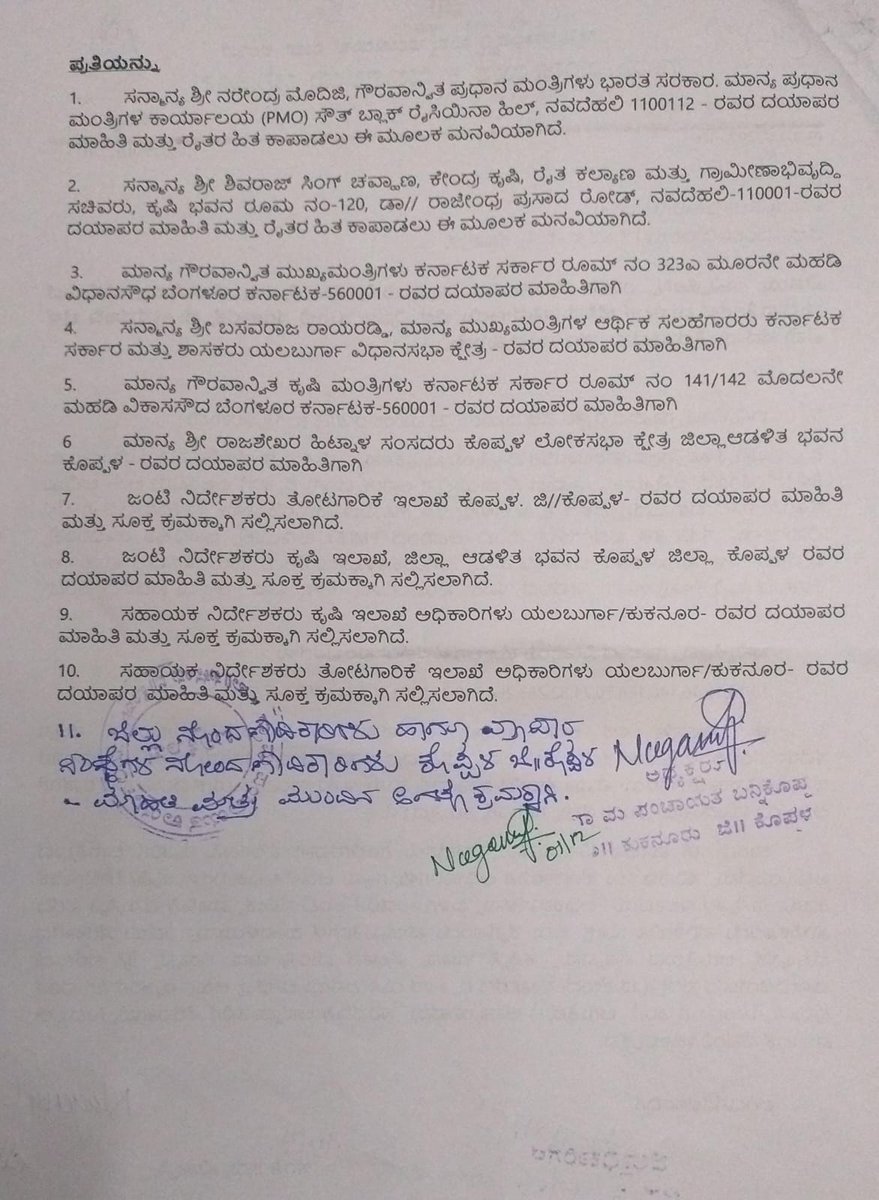 ಪ್ರತಿಯನ್ನು
1. ಸನ್ಮಾನ್ಯ ಶ್ರೀ ನರೇಂದ್ರ ಮೊದಿಜಿ, ಗೌರವಾನ್ವಿತ ಪ್ರಧಾನ ಮಂತ್ರಿಗಳು ಭಾರತ ಸರಕಾರ. ಮಾನ್ಯ ಪ್ರಧಾನ
ಮಂತ್ರಿಗಳ ಕಾರ್ಯಾಲಯ (PMO) ಸೌತ್ ಬ್ಲಾಕ್ ರೈಸಿಯಿನಾ ಹಿಲ್, ನವದೆಹಲಿ 1100112 - ರವರ ದಯಾಪರ
ಮಾಹಿತಿ ಮತ್ತು ರೈತರ ಹಿತ ಕಾಪಾಡಲು ಈ ಮೂಲಕ ಮನವಿಯಾಗಿದೆ.
2. ಸನ್ಮಾನ್ಯ ಶ್ರೀ ಶಿವರಾಜ್ ಸಿಂಗ್ ಚವ್ಹಾಣ, ಕೇಂದ್ರ ಕೃಷಿ, ರೈತ ಕಲ್ಯಾಣ ಮತ್ತು ಗ್ರಾಮೀಣಾಭಿವೃದ್ದಿ
ಸಚಿವರು, ಕೃಷಿ ಭವನ ರೂಮ ನಂ-120, ಡಾ// ರಾಜೇಂಧ್ರ ಪ್ರಸಾದ ರೋಡ್, ನವದೆಹಲಿ-110001-ರವರ
ದಯಾಪರ ಮಾಹಿತಿ ಮತ್ತು ರೈತರ ಹಿತ ಕಾಪಾಡಲು ಈ ಮೂಲಕ ಮನವಿಯಾಗಿದೆ.
3. ಮಾನ್ಯ ಗೌರವಾನ್ವಿತ ಮುಖ್ಯಮಂತ್ರಿಗಳು ಕರ್ನಾಟಕ ಸರ್ಕಾರ ರೂಮ್ ನಂ 323ಎ ಮೂರನೇ ಮಹಡಿ
ವಿಧಾನಸೌಧ ಬೆಂಗಳೂರ ಕರ್ನಾಟಕ-560001 - ರವರ ದಯಾಪರ ಮಾಹಿತಿಗಾಗಿ
4. ಸನ್ಮಾನ್ಯ ಶ್ರೀ ಬಸವರಾಜ ರಾಯರಡ್ಡಿ, ಮಾನ್ಯ ಮುಖ್ಯಮಂತ್ರಿಗಳ ಆರ್ಥಿಕ ಸಲಹೆಗಾರರು ಕರ್ನಾಟಕ
ಸರ್ಕಾರ ಮತ್ತು ಶಾಸಕರು ಯಲಬುರ್ಗಾ ವಿಧಾನಸಭಾ ಕ್ಷೇತ್ರ - ರವರ ದಯಾಪರ ಮಾಹಿತಿಗಾಗಿ
5. ಮಾನ್ಯ ಗೌರವಾನ್ವಿತ ಕೃಷಿ ಮಂತ್ರಿಗಳು ಕರ್ನಾಟಕ ಸರ್ಕಾರ ರೂಮ್ ನಂ 141/142 ಮೊದಲನೇ
ಮಹಡಿ ವಿಕಾಸಸೌದ ಬೆಂಗಳೂರ ಕರ್ನಾಟಕ-560001 - ರವರ ದಯಾಪರ ಮಾಹಿತಿಗಾಗಿ
6 ಮಾನ್ಯ ಶ್ರೀ ರಾಜಶೇಖರ ಹಿಟ್ನಾಳ ಸಂಸದರು ಕೊಪ್ಪಳ ಲೋಕಸಭಾ ಕ್ಷೇತ್ರ ಜಿಲ್ಲಾಆಡಳಿತ ಭವನ
ಕೊಪ್ಪಳ - ರವರ ದಯಾಪರ ಮಾಹಿತಿಗಾಗಿ
7. ಜಂಟಿ ನಿರ್ದೇಶಕರು ತೋಟಗಾರಿಕೆ ಇಲಾಖೆ ಕೊಪ್ಪಳ. ಜಿ//ಕೊಪ್ಪಳ- ರವರ ದಯಾಪರ ಮಾಹಿತಿ
ಮತ್ತು ಸೂಕ್ತ ಕ್ರಮಕ್ಕಾಗಿ ಸಲ್ಲಿಸಲಾಗಿದೆ.
8. ಜಂಟಿ ನಿರ್ದೇಶಕರು ಕೃಷಿ ಇಲಾಖೆ, ಜಿಲ್ಲಾ ಆಡಳಿತ ಭವನ ಕೊಪ್ಪಳ ಜಿಲ್ಲಾ ಕೊಪ್ಪಳ ರವರ
ದಯಾಪರ ಮಾಹಿತಿ ಮತ್ತು ಸೂಕ್ತ ಕ್ರಮಕ್ಕಾಗಿ ಸಲ್ಲಿಸಲಾಗಿದೆ.
9. ಸಹಾಯಕ ನಿರ್ದೇಶಕರು ಕೃಷಿ ಇಲಾಖೆ ಅಧಿಕಾರಿಗಳು ಯಲಬುರ್ಗಾ/ಕುಕನೂರ- ರವರ ದಯಾಪರ
ಮಾಹಿತಿ ಮತ್ತು ಸೂಕ್ತ ಕ್ರಮಕ್ಕಾಗಿ ಸಲ್ಲಿಸಲಾಗಿದೆ.
10. ಸಹಾಯಕ ನಿರ್ದೇಶಕರು ತೋಟಗಾರಿಕೆ ಇಲಾಖೆ ಅಧಿಕಾರಿಗಳು ಯಲಬುರ್ಗಾ/ಕುಕನೂರ- ರವರ
ದಯಾಪರ ಮಾಹಿತಿ ಮತ್ತು ಸೂಕ್ತ ಕ್ರಮಕ್ಕಾಗಿ ಸಲ್ಲಿಸಲಾಗಿದೆ.
11. ಜಿಲ್ಲಾ ನೋಂದಣಾಧಿಕಾರಿಗಳು ಹಾಗೂ
ನೋಂದಣಾಧಿಕಾರಿಗಳು ಕೊಪ್ಪಳ ಜಿ//ಕೊಪ್ಪಳ
- ಮಾಹಿತಿ ಮತ್ತು ಮುಂದಿನ ಕ್ರಮಕ್ಕಾಗಿ.
ಅಧ್ಯಕ್ಷರು
ಗ್ರಾಮ ಪಂಚಾಯತ ಬನ್ನಿಕೊಪ್ಪ
ಕುಕನೂರು ಜಿ|| ಕೊಪ್ಪಳ
01/12